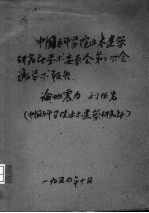 中国科学院土木建筑
研究所学术委员会第二次会
议学术报告
论地震力 刘恢先
(中国科学院土木建筑研究所)
一九五 年十月